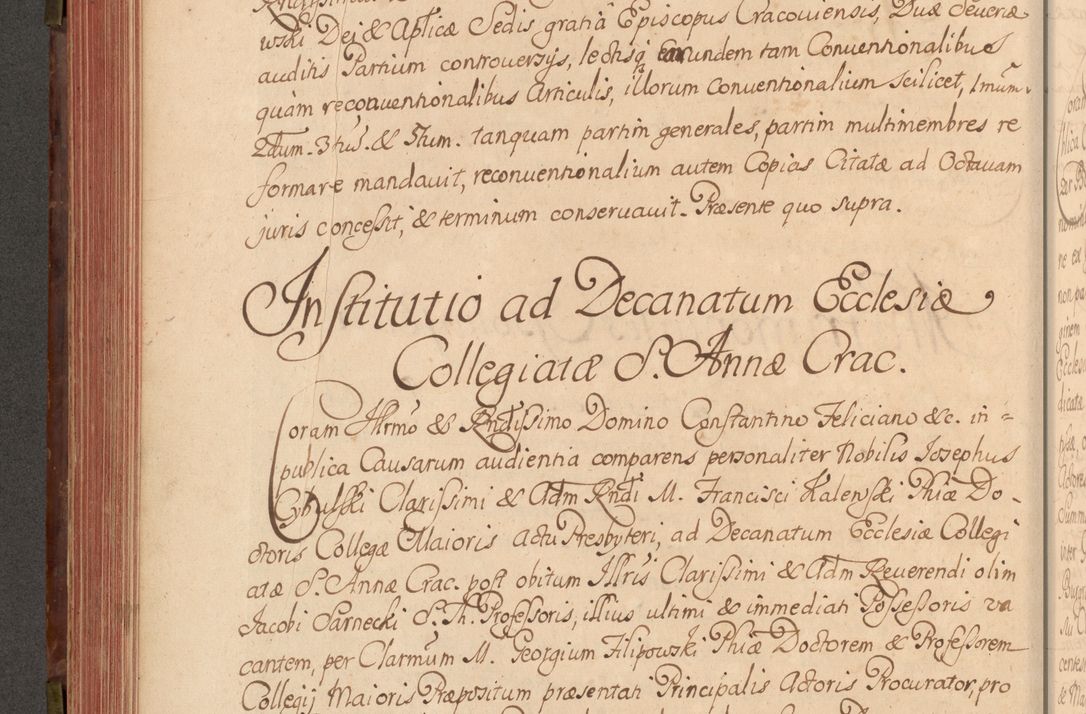 wski Dei & Aplicæ Sedis gratiâ Episcopus Cracoviensis, Duæ Severiæ
auditis Partium controversys, lectisq eorundem tam Conventionalibus
quàm reconventionalibus Articulis, illorum Conventionalium scilicet, 1mum.
2dum. 3tiũ. & 5tum. tanquam partim generales, partim multimembres re
formare mandavit, reconventionalium autem Copias Citatæ ad Octavam
juris concessit, & terminum conservavit. Præsente quo supra.
Institutio ad Decanatum Ecclesiæ
Collegiatæ S. Annæ Crac.
Coram Illrmo & Rndissimo Domino Constantino Feliciano &c. in =
publica Causarum audientia comparens personaliter Nobilis Iosephus
Cybulski Clarissimi & Adm Rndi M. Francisci Kalenski Phiæ Do-
ctoris Collegæ Maioris Actu Presbyteri, ad Decanatum Ecclesiæ Collegi
atæ S. Annæ Crac. post obitum Illris Clarissimi & Adm Reverendi olim
Jacobi Sarnecki S. Th. Professoris, illius ultimi & immediati Possessoris va
cantem, per Clarmum M. Georgium Filipowski Phiæ Doctorem & Professorem
Collegij Maioris Præpositum præsentati Principalis Actoris Procurator, pro